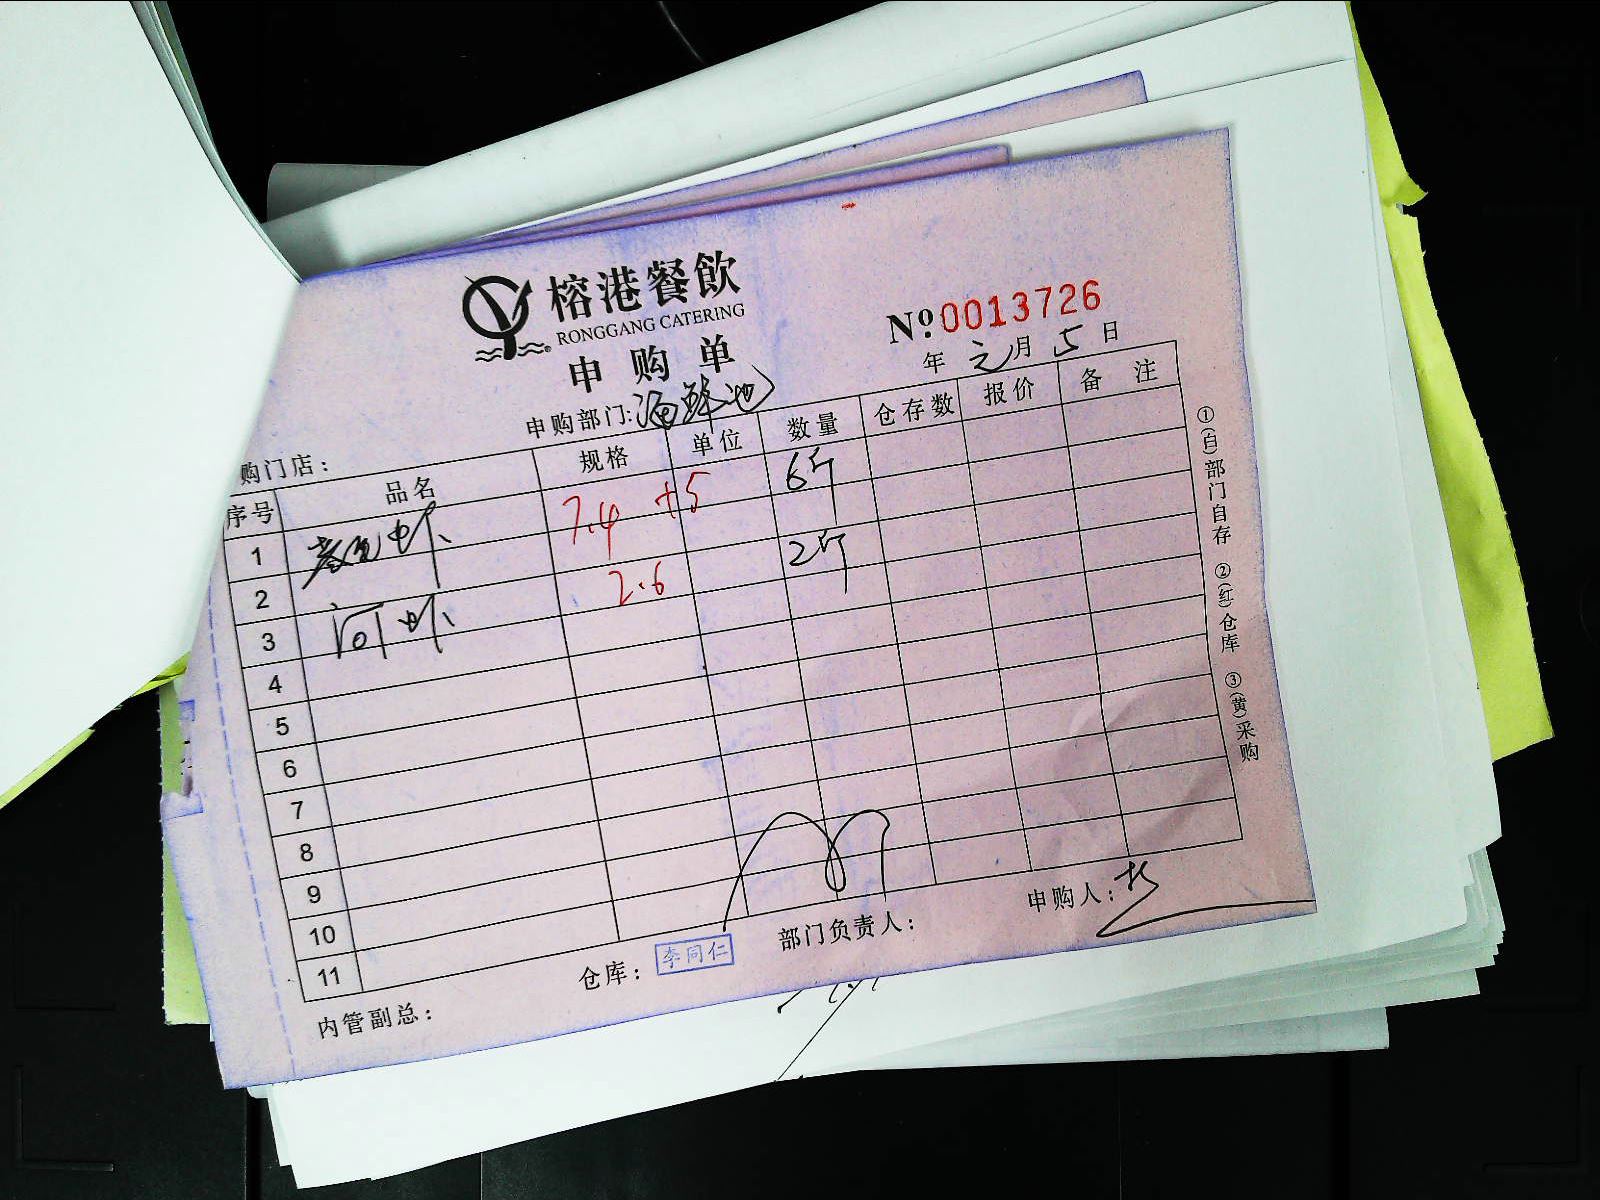 榕港餐飲
RONGGANG CATERING
申购单
№ 0013726
年 元月 5日
申购部门: 海鲜池
购门店:
序号 品名 规格 单位 数量 仓存数 报价 备注
1 虾 7.4 +5 6斤
2 2.6 2斤
3 河虾
4
5
6
7
8
9
10
11
仓库: 李同仁 部门负责人: 申购人:
内管副总:
①(白)部门自存 ②(红)仓库 ③(黄)采购